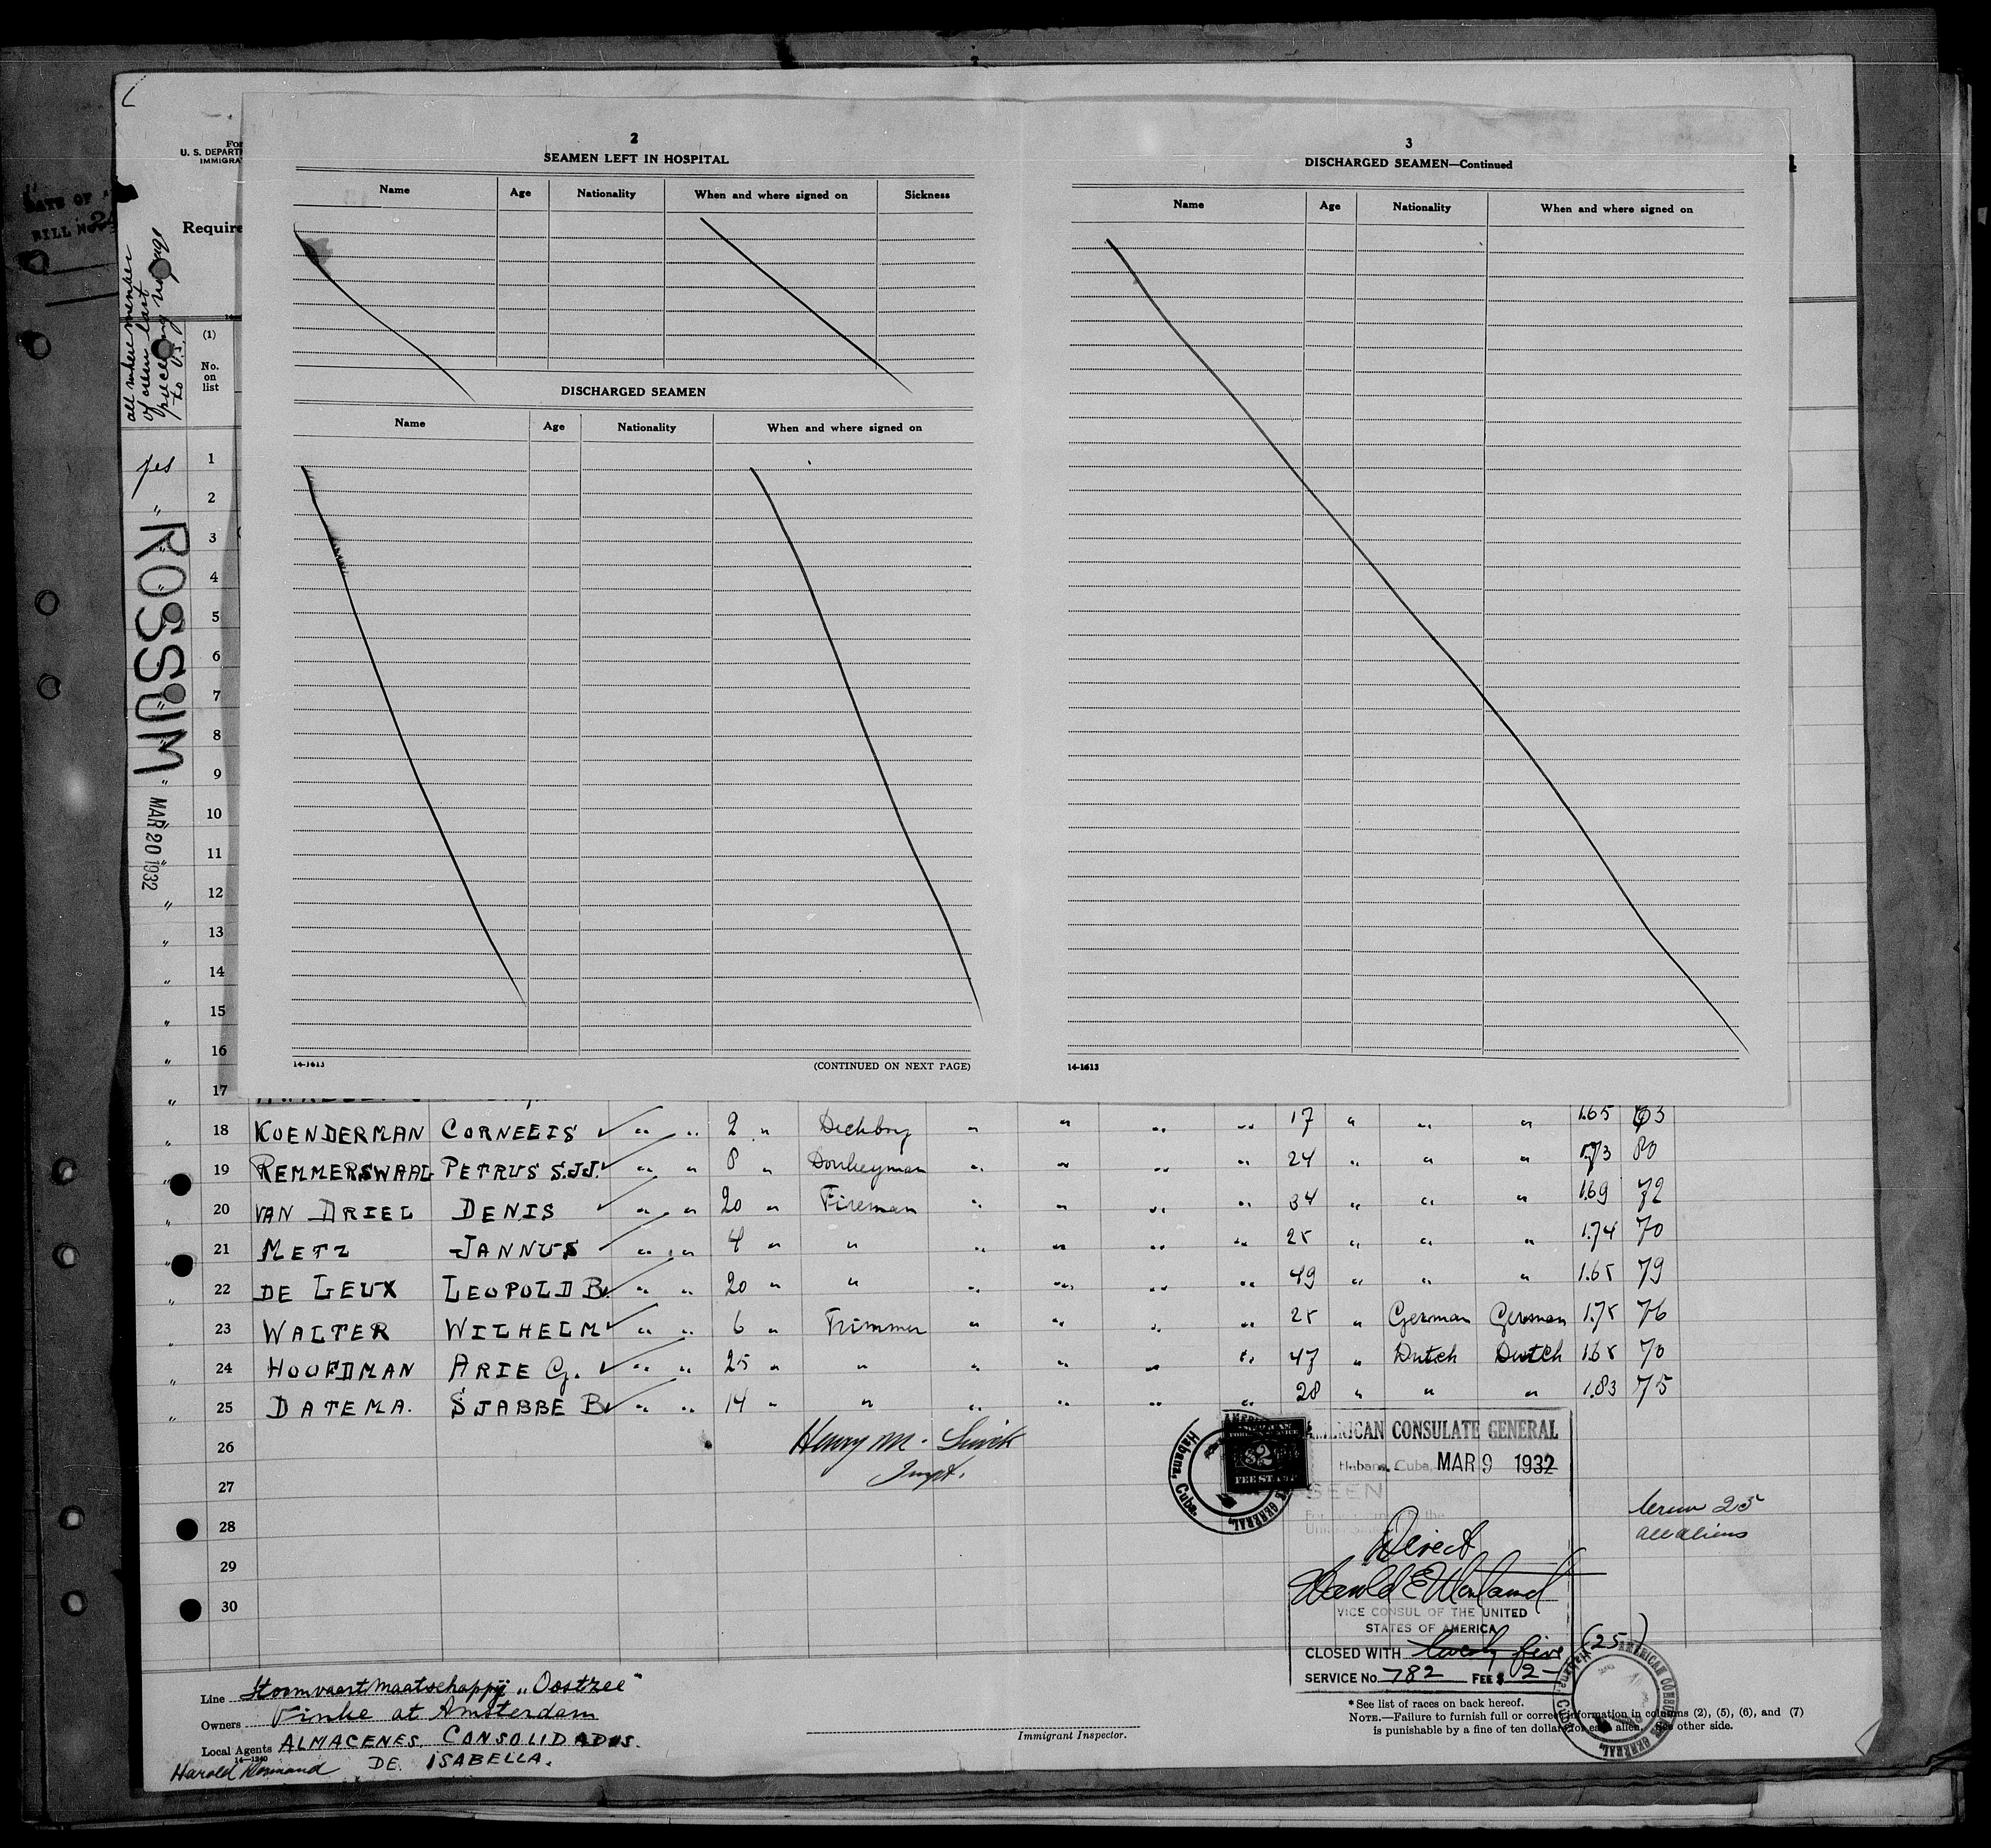 DATE OF
BILL No.
For
U. S. DEPART
IMMIGRA
Require
all where member
of crew last
preceding voyage
to U.S.
(1)
No.
on
list
2
SEAMEN LEFT IN HOSPITAL
Name Age Nationality When and where signed on Sickness
DISCHARGED SEAMEN
Name Age Nationality When and where signed on
14-1613 (CONTINUED ON NEXT PAGE)
3
DISCHARGED SEAMEN—Continued
Name Age Nationality When and where signed on
14-1613
yes 1
" 2
3
4
5
6
7
8
9
10
11
12
13
14
15
16
17
ROSSUM
MAR 20 1932
" 18 KOENDERMAN CORNEEIS ✓ " " 2 " Deckboy " " " " 17 " " " 1.65 63
" 19 REMMERSWAAL PETRUS S.J.J. ✓ " " 8 " Donkeyman " " " " 24 " " " 1.73 80
" 20 VAN DRIEL DENIS ✓ " " 20 " Fireman " " " " 34 " " " 1.69 72
" 21 METZ JANNUS ✓ " " 4 " " " " " " 25 " " " 1.74 70
" 22 DE LEUX LEOPOLD B. ✓ " " 20 " " " " " " 49 " " " 1.65 79
" 23 WALTER WILHELM ✓ " " 6 " Trimmer " " " " 25 " German German 1.75 76
" 24 HOOFDMAN ARIE G. ✓ " " 25 " " " " " " 47 " Dutch Dutch 1.65 70
" 25 DATEMA. SJABBE B. ✓ " " 14 " " " " " " 28 " " " 1.83 75
26 Henry M.
27 Inspt.
28
29
30
AMERICAN CONSULATE GENERAL
Habana, Cuba, MAR 9 1932
SEEN
FEE STAMP
Habana, Cuba.
Direct
Crew 25
all aliens
VICE CONSUL OF THE UNITED
STATES OF AMERICA
CLOSED WITH twenty five (25)
SERVICE No. 782 FEE $ 2-
AMERICAN CONSULATE GENERAL, Habana, Cuba.
Line Stoomvaart Maatschappij „Oostzee"
Owners Vinke at Amsterdam
Local Agents ALMACENES CONSOLIDADOS.
14-1240
DE ISABELLA.
Immigrant Inspector.
* See list of races on back hereof.
NOTE.—Failure to furnish full or correct information in columns (2), (5), (6), and (7)
is punishable by a fine of ten dollars for each alien. See other side.